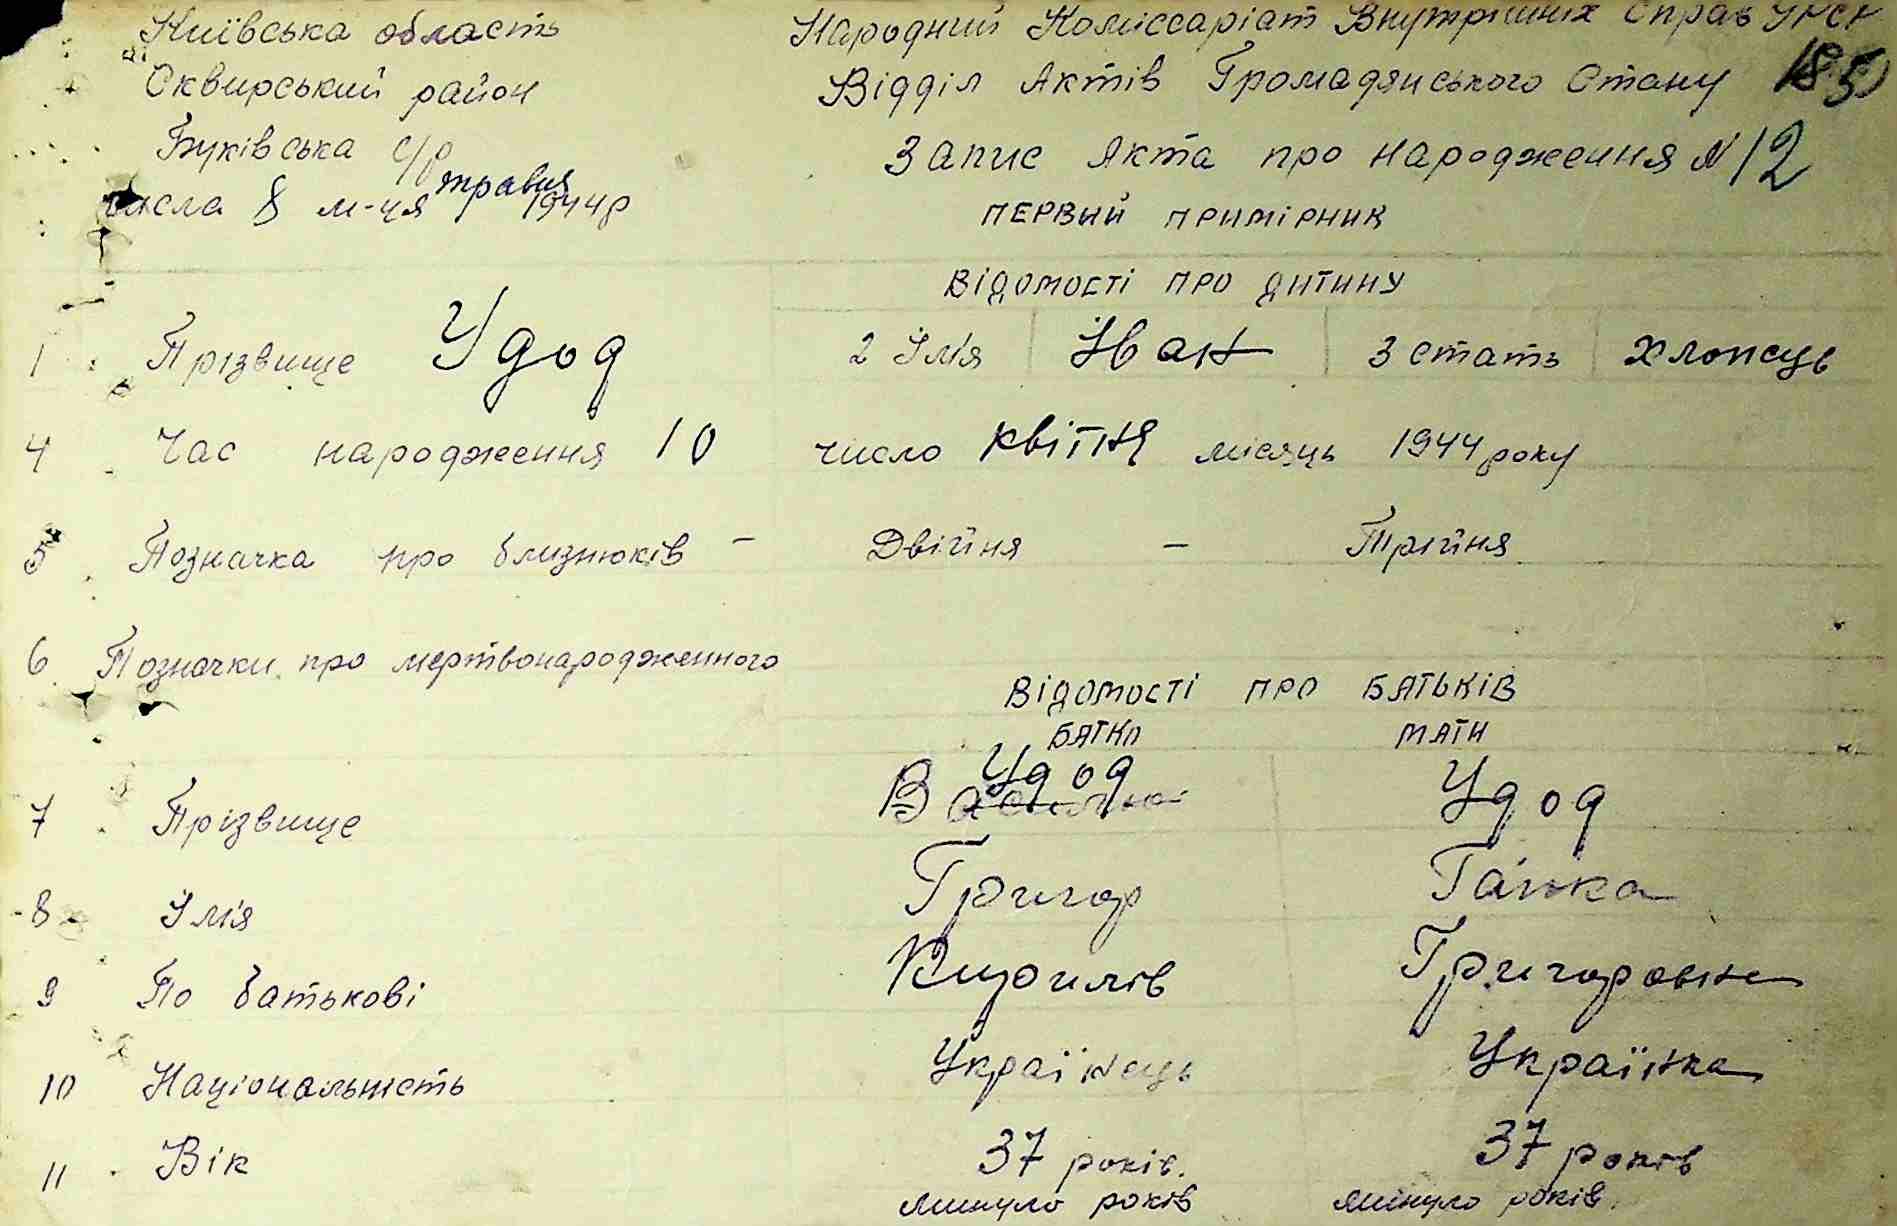 Київська область
Народний Комісcаріат Внутрішніх Справ УРСР
185
Сквирський район
Відділ Актів Громадянського Стану
Буківська с/р
Запис Акта про народження N 12
числа 8 м-ця травня 1944р
первый примірник
Відомості про дитину
1 Прізвище Удод 2 Ім'я Іван 3 стать хлопець
4 Час народження 10 число квітня місяць 1944 року
5 Позначка про близнюків – Двійня – Трійня
6 Позначки про мертвонародженного
Відомості про батьків
Батко мати
7 Прізвище Удод Удод
8 Ім'я Григор Ганка
9 По батькові Кирилів Григоровна
10 Національність Українець Українка
11 Вік 37 років. 37 років
минуло років минуло років.